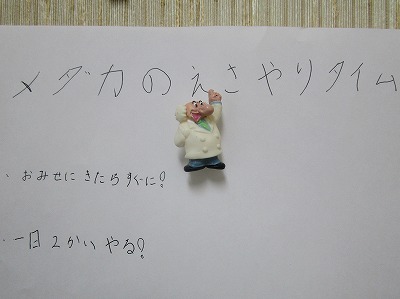 メダカのえさやりタイム
・おみせにきたらすぐに!
・一日2かいやる!